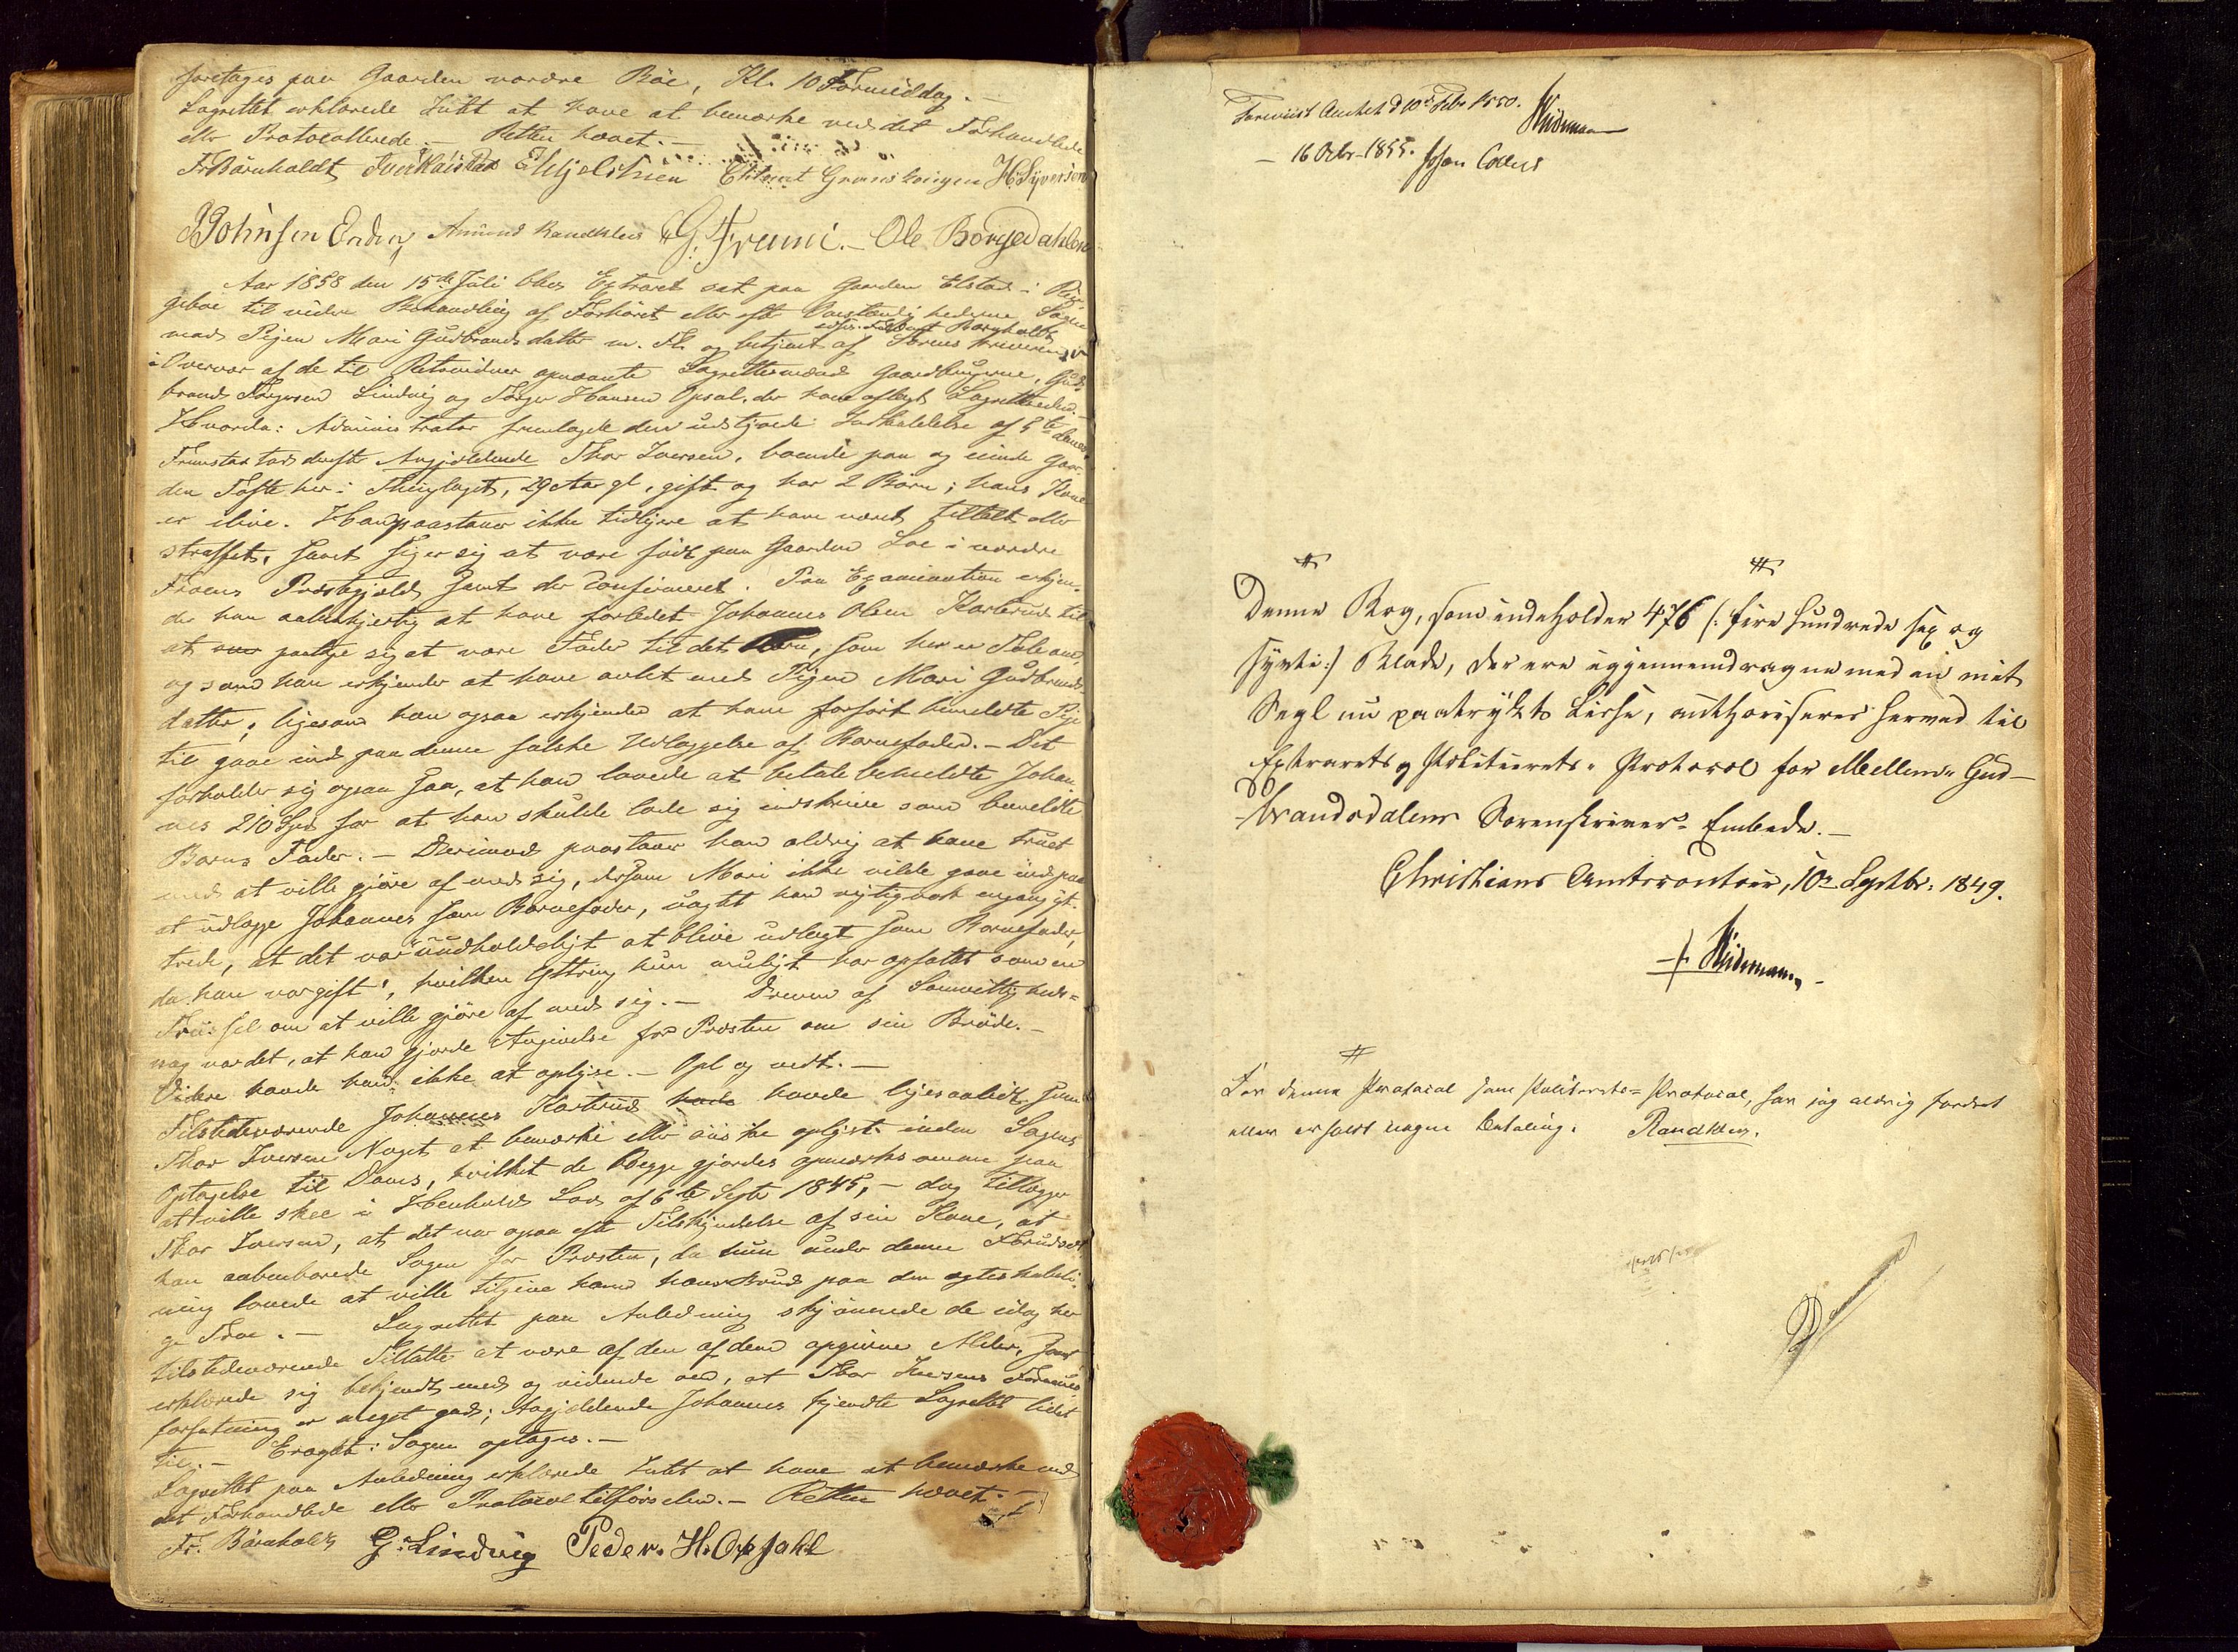 foretages paa Gaarden nordre Böe, Kl. 10 Formiddag.-
Lagrettet erklærede Intet at have at bemærke ved det Forhandlede
eller Protocollerede.- Retten hævet.-
Fr Barnholdt Iver Kaistad E Hjelstuen H. Syversen
J Johnsen Ender Amund Randklev G. Fremi.- Ole Borgedahlen
Aar 1858 den 15de Juli blev Extraret sat paa Gaarden Elstad i Ringeboe
til videre Behandling af Forhöret eller efter Omstændighederne Sagen
const. Fuldmægt Barnholdt
mod Pigen Mari Gudbrandsdatter m. Fl. og betjent af Sorenskriveren ved
i Overvær af de til Retsvidner opnævnte Lagrettesmænd Gaardbrugerne, Gud-
brand Torgersen Lindvig og Peder Hansen Opsal, der have aflagt Lagretteseden.-
Hvorda: Administrator fremlagde den udstædte Indkaldelse af 5te dennes
Fremstod derefter Angjeldende Thor Iversen, boende paa og eiende Gaar-
den Tofte her i Thinglaget, 29 Aar gl, gift og har 2 Börn; hans Kone
er ilive. Han paastaaer ikke tidligere at have været tiltalt eller
straffet, samt siger sig at være födt paa Gaarden Loe i nordre
Froens Præstegjeld, samt der Confirmeret. Paa Examination erkjen-
der han aabenhjertig at have forledet Johannes Olsen Karterud til
at paatage sig at være Fader til det Barn, som her er Tale om,
og som han erkjender at have avlet med Pigen Mari Gudbrands-
datter; ligesom han ogsaa erkjender at have forfört bemeldte Pige
til gaae ind paa denne falske Udlæggelse af Barnefader.- Det
forholder sig ogsaa saa, at han lovede at betale bemeldte Johan-
nes 210 Spd for at han skulde lade sig indskrive som bemeldte
Barns Fader.- Derimod paastaaer han aldrig at have truet
med at ville gjöre af med sig, dersom Mari ikke vilde gaae ind paa
at udlægge Johannes som Barnefader, uagtet han rigtignok engang yt-
trede, at det var uudholdeligt at blive udlagt som Barnefader,
da han var gift, hvilken Yttring hun muligt har opfattet som en
Trusel om at ville gjöre af med sig.- Dreven af Samvittigheds-
nag var det, at han gjorde Angivelse for Provsten om sin Bröde.-
Videre havde han ikke at oplyse.- Opl og vedt.-
Tilstedeværende Johannes Karterud havde ligesaalidt som
Thor Iversen Noget at bemærke eller önske oplyst inden Sagens
Optagelse til Doms, hvilket de Begge gjordes opmærksomme paa
at ville skee i Henhold til Lov af 6te Septr 1845,- dog tillægger
Thor Iversen, at det var ogsaa efter Tilskyndelse af sin Kone, at
han aabenbarede Sagen for Provsten, da hun under denne Forudsæt-
ning lovede at ville tilgive ham hans Brud paa den ægteskabeli-
ge Troe.- Lagrettet paa Anledning skjönnede de idag her
tilstedeværende Tiltalte at være af den af dem opgivne Alder, samt
erklærede sig bekjendt med og vidende om, at Thor Iversens Formues-
forfatning er meget god; Angjeldende Johannes kjendte Lagrettet lidet
til.- Eragtet: Sagen optages.-
Lagrettet paa Anledning erklærede Intet at have at bemærke ved
det Forhandlede eller Protocoltilförselen.- Retten hævet.-
Fr. Barnholdt G. Lindvig Peder. H. Opsahl
Foreviist Amtet d 10de Febr 1850. Heidmann
- 16 Octbr. 1855. Johan Collett
Denne Bog, som indeholder 476 (: fire hundrede sex og
sytti:) Blade, der ere igjennemdragne med en mit
Segl nu paatrykt Lidse, authoriseres herved til
Extrarets og Politierets- Protocol for Mellem- Gud-
brandsdalens Sorenskriver- Embede.-
Christians Amtscontoir, 10de Septbr: 1849.
Heidmann
For denne Protocol som Politirets= Protocol, har jeg aldrig fordret
eller erholdt nogen Betaling. Randklev.